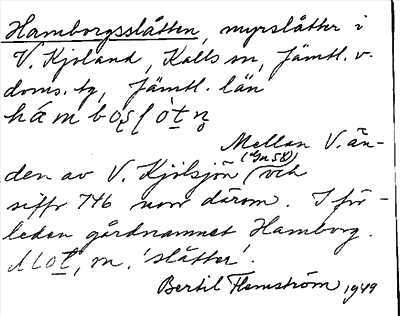 Hamborgsslåtten, myrslåtter i
V. Kjoland, Kalls sn, Jämtl. v.
doms. tg, Jämtl. län
Mellan V. än-
(Gn 58)
den av V. Kjölsjön och
siffr 746 norr därom. I för-
leden gårdnamnet Hamborg.
, m. 'slåtter'.
Bertil Flemström 1949